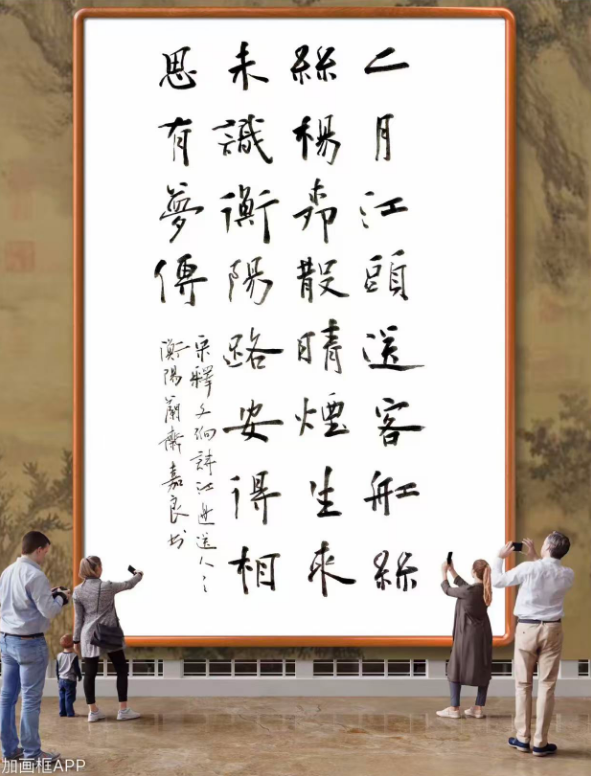 二月江頭送客舡絲
絲楊柳散晴煙生來
未識衡陽路安得相
思有夢傳
宋釋文珦詩江邊送人之
衡陽蘭齋嘉良书
加画框APP